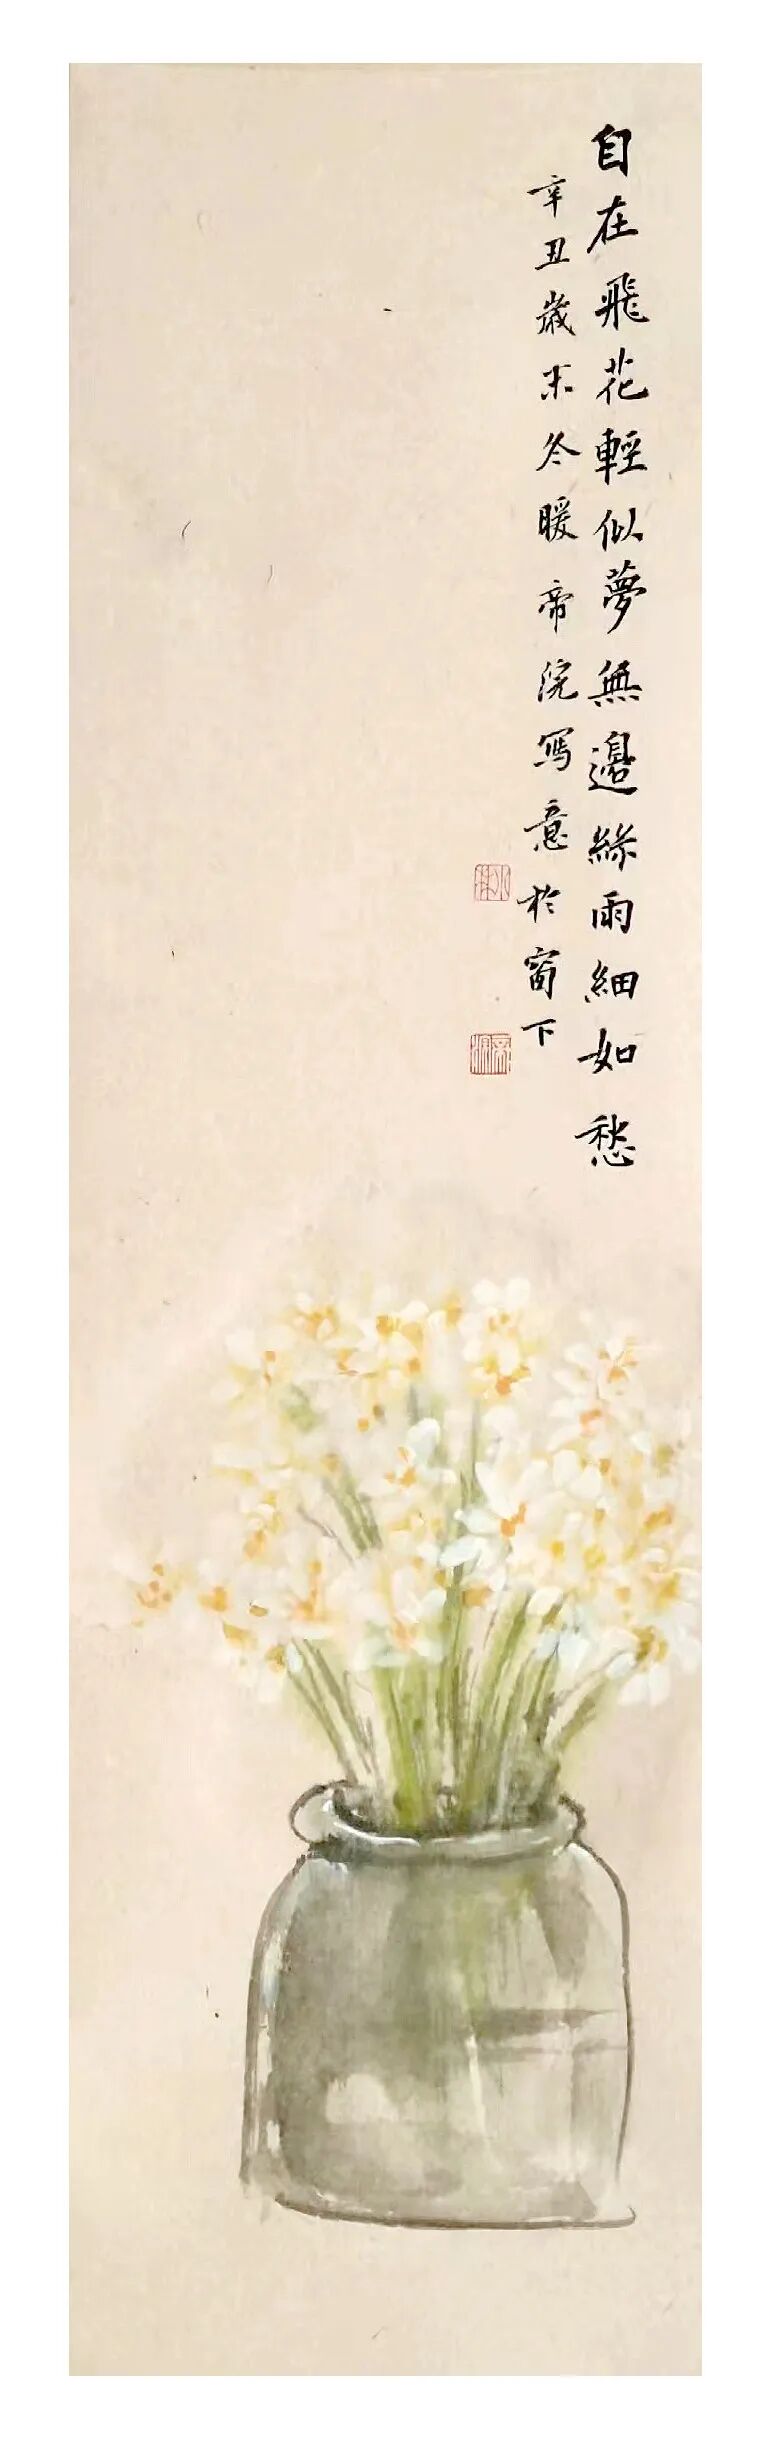 自在飛花輕似夢無邊絲雨細如愁
辛丑歲末冬暖帝浣寫意於窗下